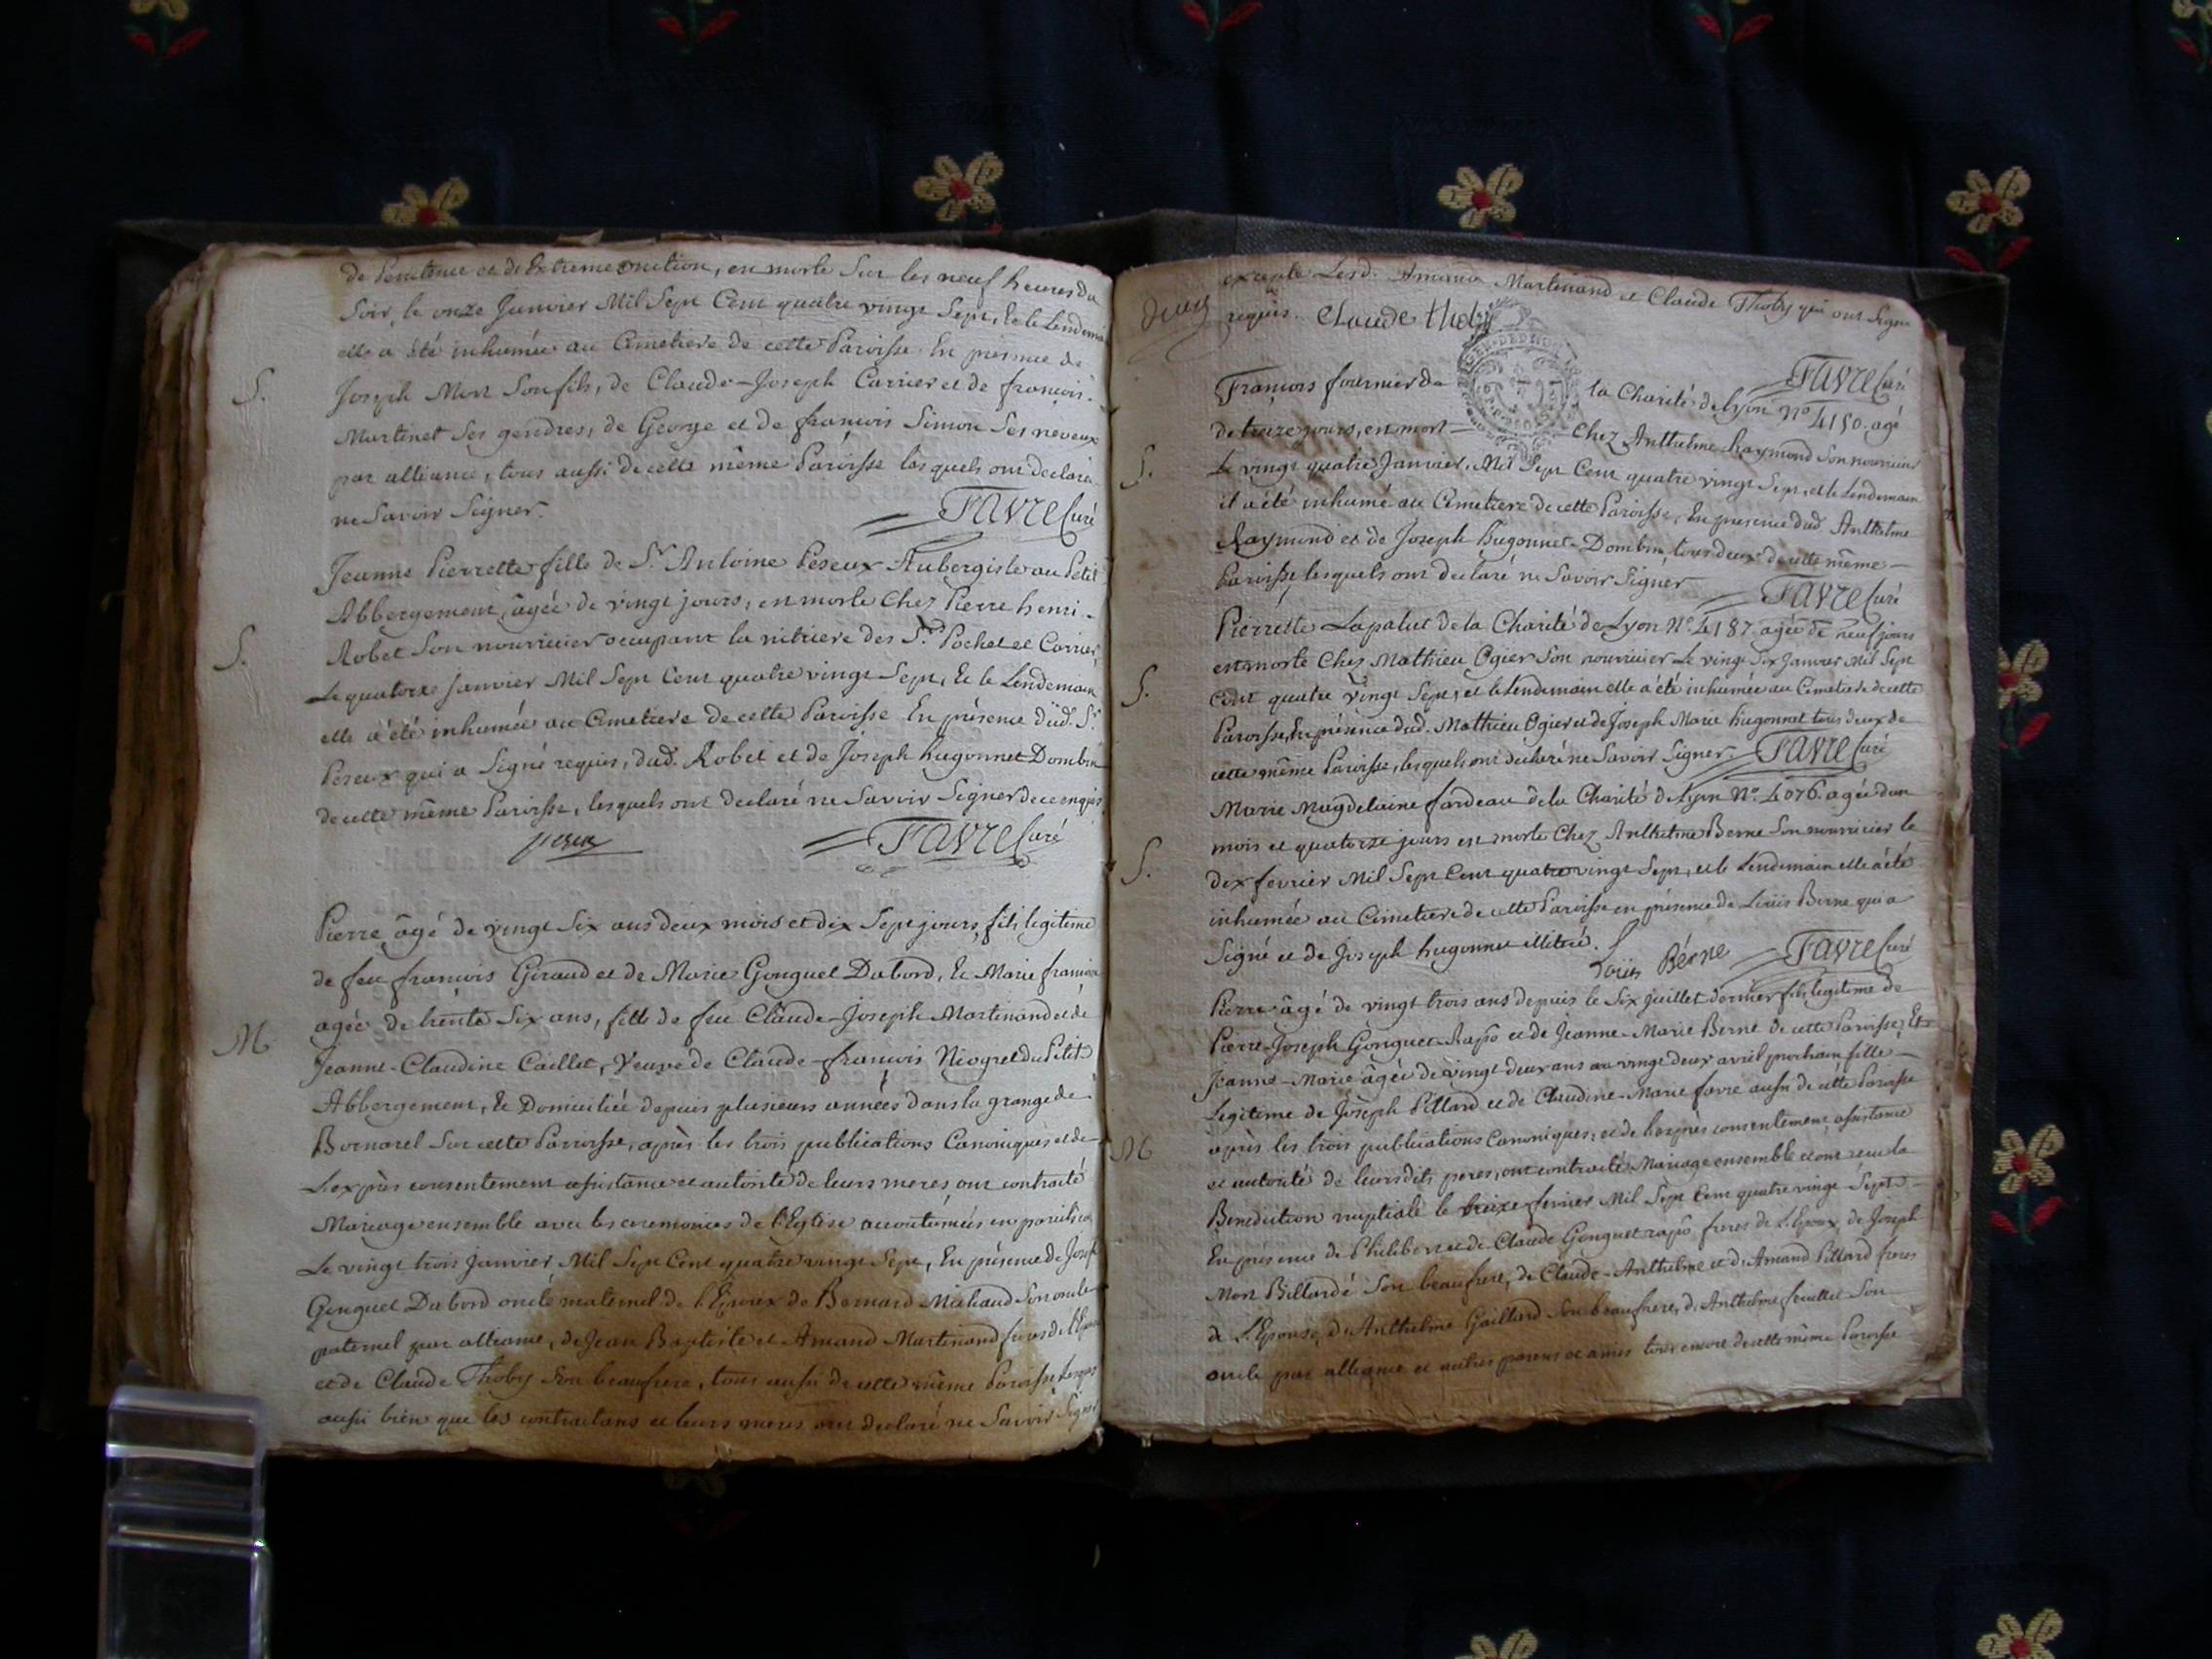 de Penitence et de Extreme onction, est morte Sur les neuf heures du
Soir, le onze Janvier Mil Sept Cent quatre vingt Sept, Et le Lendemain
elle a été inhumée au Cimetiere de cette Paroisse En présence de
S.
Joseph Mort Son fils, de Claude-Joseph Carrier et de françois
Martinet Ses gendres, de George et de françois Simon Ses neveux
par alliance, tous aussi de cette même Paroisse lesquels ont declaré
ne Savoir Signer.
FAVRE Curé
Jeanne Pierrette fille de Sr. Antoine Peseux Aubergiste au Petit
Abbergement, âgée de vingt jours, est morte Chez Pierre henri
S.
Robet Son nourricier occupant la vitriere des Srs. Pochet et Carrier,
Le quatorze Janvier Mil Sept Cent quatre vingt Sept, Et le Lendemain
elle a été inhumée au Cimetiere de cette Paroisse En présence dud. Sr.
Peseux qui a Signé requis, dud. Robet et de Joseph hugonnet Dombin
de cette même Paroisse, lesquels ont declaré ne Savoir Signer de ce enquis
FAVRE Curé
Pierre âgé de vingt Six ans deux mois et dix Sept jours, fils legitime
de feu françois Giraud et de Marie Gonguet Dabord, Et Marie françoise
M
agée de trente Six ans, fille de feu Claude-Joseph Martinand et de
Jeanne-Claudine Caillet, Veuve de Claude-françois Niogret du Petit
Abbergement, Et Domiciliée depuis plusieurs années dans la grange de
Bornarel Sur cette Parroisse, après les trois publications Canoniques et de
L'exprès consentement assistance et autorité de leurs meres, ont contracté
Mariage ensemble avec les ceremonies de l'Eglise accoutumées en pareil cas
Le vingt trois Janvier Mil Sept Cent quatre vingt Sept, En présence de Joseph
Gonguet Dabord oncle maternel de l'Epoux de Bernard Michaud Son oncle
paternel par alliance, de Jean Baptiste et Amand Martinand freres de l'Epouse
et de Claude Thoby Son beaufrere, tous aussi de cette même Paroisse Lesquels
aussi bien que les contractans et leurs meres ont declaré ne Savoir Signer
excepté Lesd. Amand Martinand et Claude Thoby qui ont Signé
requis. Claude thoby
FAVRE Curé
François fournier de la Charité de Lyon No 4150. agé
de treize jours, est mort Chez Anthelme Raymond Son nourricier
S.
Le vingt quatre Janvier, Mil Sept Cent quatre vingt Sept, et le Lendemain
il a été inhumé au Cimetiere de cette Paroisse, En présence dud. Anthelme
Raymond et de Joseph Hugonnet-Dombin, tous deux de cette même
Paroisse, lesquels ont declaré ne Savoir Signer
FAVRE Curé
Pierrette Lapalut de la Charité de Lyon No. 4187. agée de neuf jours
est morte Chez Mathieu Ogier Son nourricier Le vingt Six Janvier Mil Sept
S.
Cent quatre vingt Sept, et le Lendemain elle a été inhumée au Cimetiere de cette
Paroisse, En présence dud. Mathieu Ogier et de Joseph Marie hugonnet tous deux de
cette même Paroisse, lesquels ont declaré ne Savoir Signer. FAVRE Curé
Marie Magdelaine fardeau de la Charité de Lyon No. 4076. agée d'un
mois et quatorze jours est morte Chez Anthelme Berne Son nourricier le
S.
dix fevrier Mil Sept Cent quatre vingt Sept, et le Lendemain elle a été
inhumée au Cimetiere de cette Paroisse en présence de Loüis Berne qui a
Signé et de Joseph hugonnet illitré.
Loüis Bérne FAVRE Curé
Pierre âgé de vingt trois ans depuis le Six juillet dernier fils legitime de
Pierre-Joseph Gonguet-Rapo et de Jeanne-Marie Berne de cette Paroisse, Et
Jeanne-Marie âgée de vingt deux ans au vingt deux avril prochain fille
Legitime de Joseph Pillard et de Claudine-Marie favre aussi de cette Paroisse
M
après les trois publications Canoniques, et de l'exprès consentement, assistance
et autorité de leursdits peres, ont contracté Mariage ensemble et ont recu la
Benediction nuptiale le treize fevrier Mil Sept Cent quatre vingt Sept
En présence de Philibert et de Claude Gonguet rapo freres de l'Epoux, de Joseph
Mort Billardé Son beaufrere, de Claude-Anthelme et d'Amand Pillard freres
de L'Epouse, d'Anthelme Gaillard Son beaufrere, d'Anthelme feuillet Son
oncle par alliance et autres parens et amis tous encore de cette même Paroisse